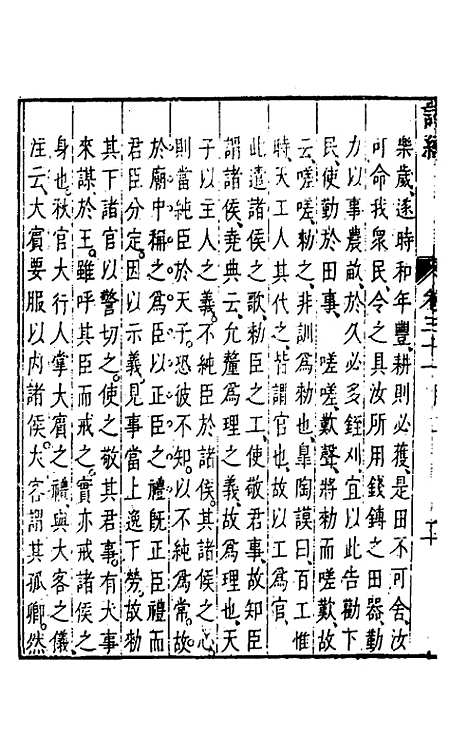 樂歲遂時和年豐耕則必獲是田不可舍汝
可命我衆民令之具汝所用錢鎛之田器勤
力以事農畝於久必多銍刈宜以此告勸下
民使勤於田事 嗟嗟歎聲將勑而嗟歎故
云嗟嗟勑之非訓爲勑也臯陶謨曰百工惟
時天工人其代之皆謂官也故以工爲官
此遣諸侯之歌勑臣之工使敬君事故知臣
謂諸侯堯典云允釐爲理之義故爲理也天
子以主人之義不純臣於諸侯其諸侯之心
則當純臣於天子恐彼不知以不純爲常故
於廟中稱之爲臣以正臣之禮旣正臣禮而
君臣分定因以示義見事當上逸下勞故勑
其下諸官以警切之使之敬其君事有大事
來謀於王雖呼其臣而戒之實亦戒諸侯之
身也秋官大行人掌大賓之禮與大客之儀
注云大賓要服以內諸侯大客謂其孤卿然